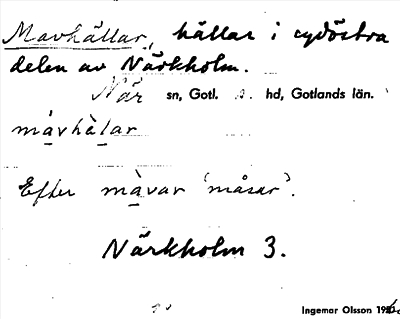 Mavhällar, hällar i sydöstra
delen av Närkholm.
När sn, Gotl. s. hd, Gotlands län.
mavhälar
Efter mavar 'måsar'.
Närkholm 3.
Ingemar Olsson